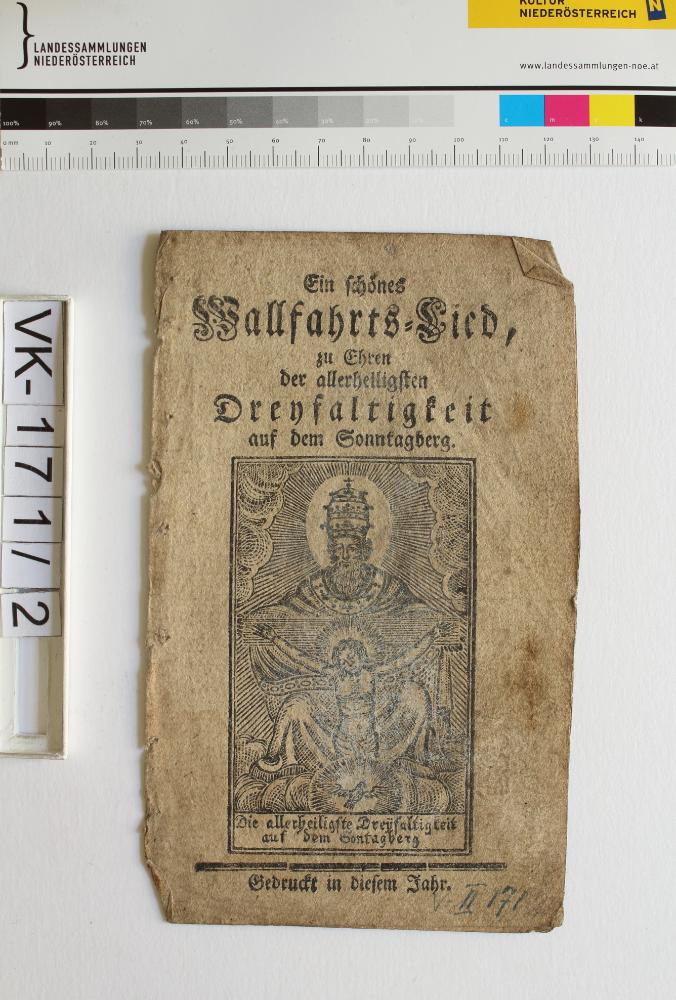 KULTUR
NIEDERÖSTERREICH N
LANDESSAMMLUNGEN
NIEDERÖSTERREICH
www.landessammlungen-noe.at
100% 90% 80% 70% 60% 50% 40% 30% 20% 10% c m y k
0 mm 10 20 30 40 50 60 70 80 90 100 110 120 130 140
VK-171/2
Ein schönes
Wallfahrts-Lied,
zu Ehren
der allerheiligsten
Dreyfaltigkeit
auf dem Sonntagberg.
Die allerheiligste Dreyfaltigkeit
auf dem Sontagberg
Gedruckt in diesem Jahr.
II 171